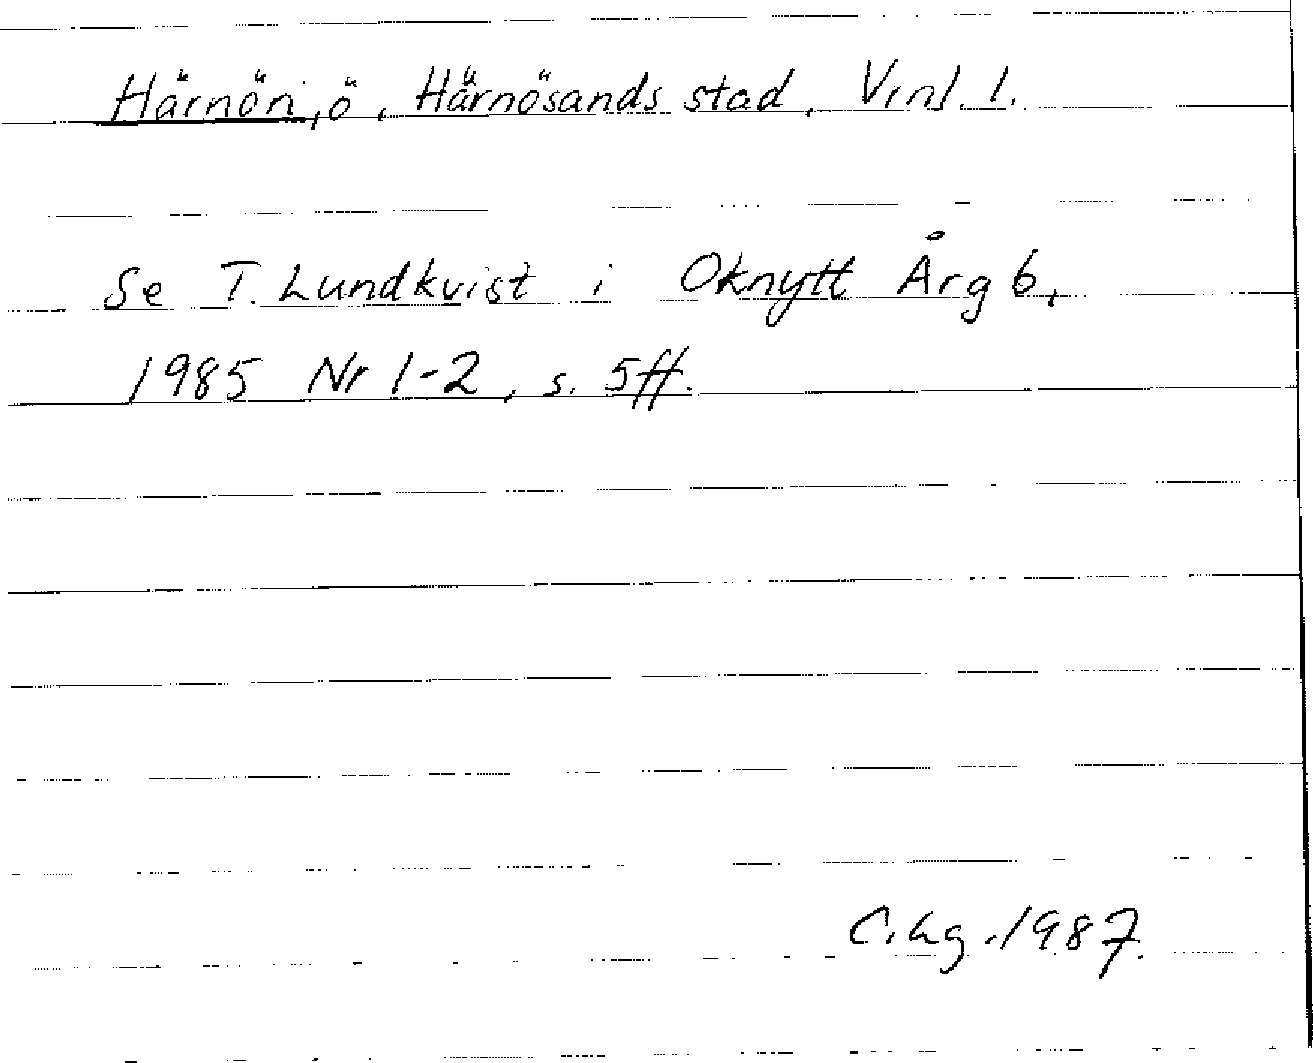 Härnön, ö, Härnösands stad, V.nl. l.
Se T. Lundkvist i Oknytt Årg 6,
1985 Nr 1-2, s. 5ff.
C.hg. 1987.